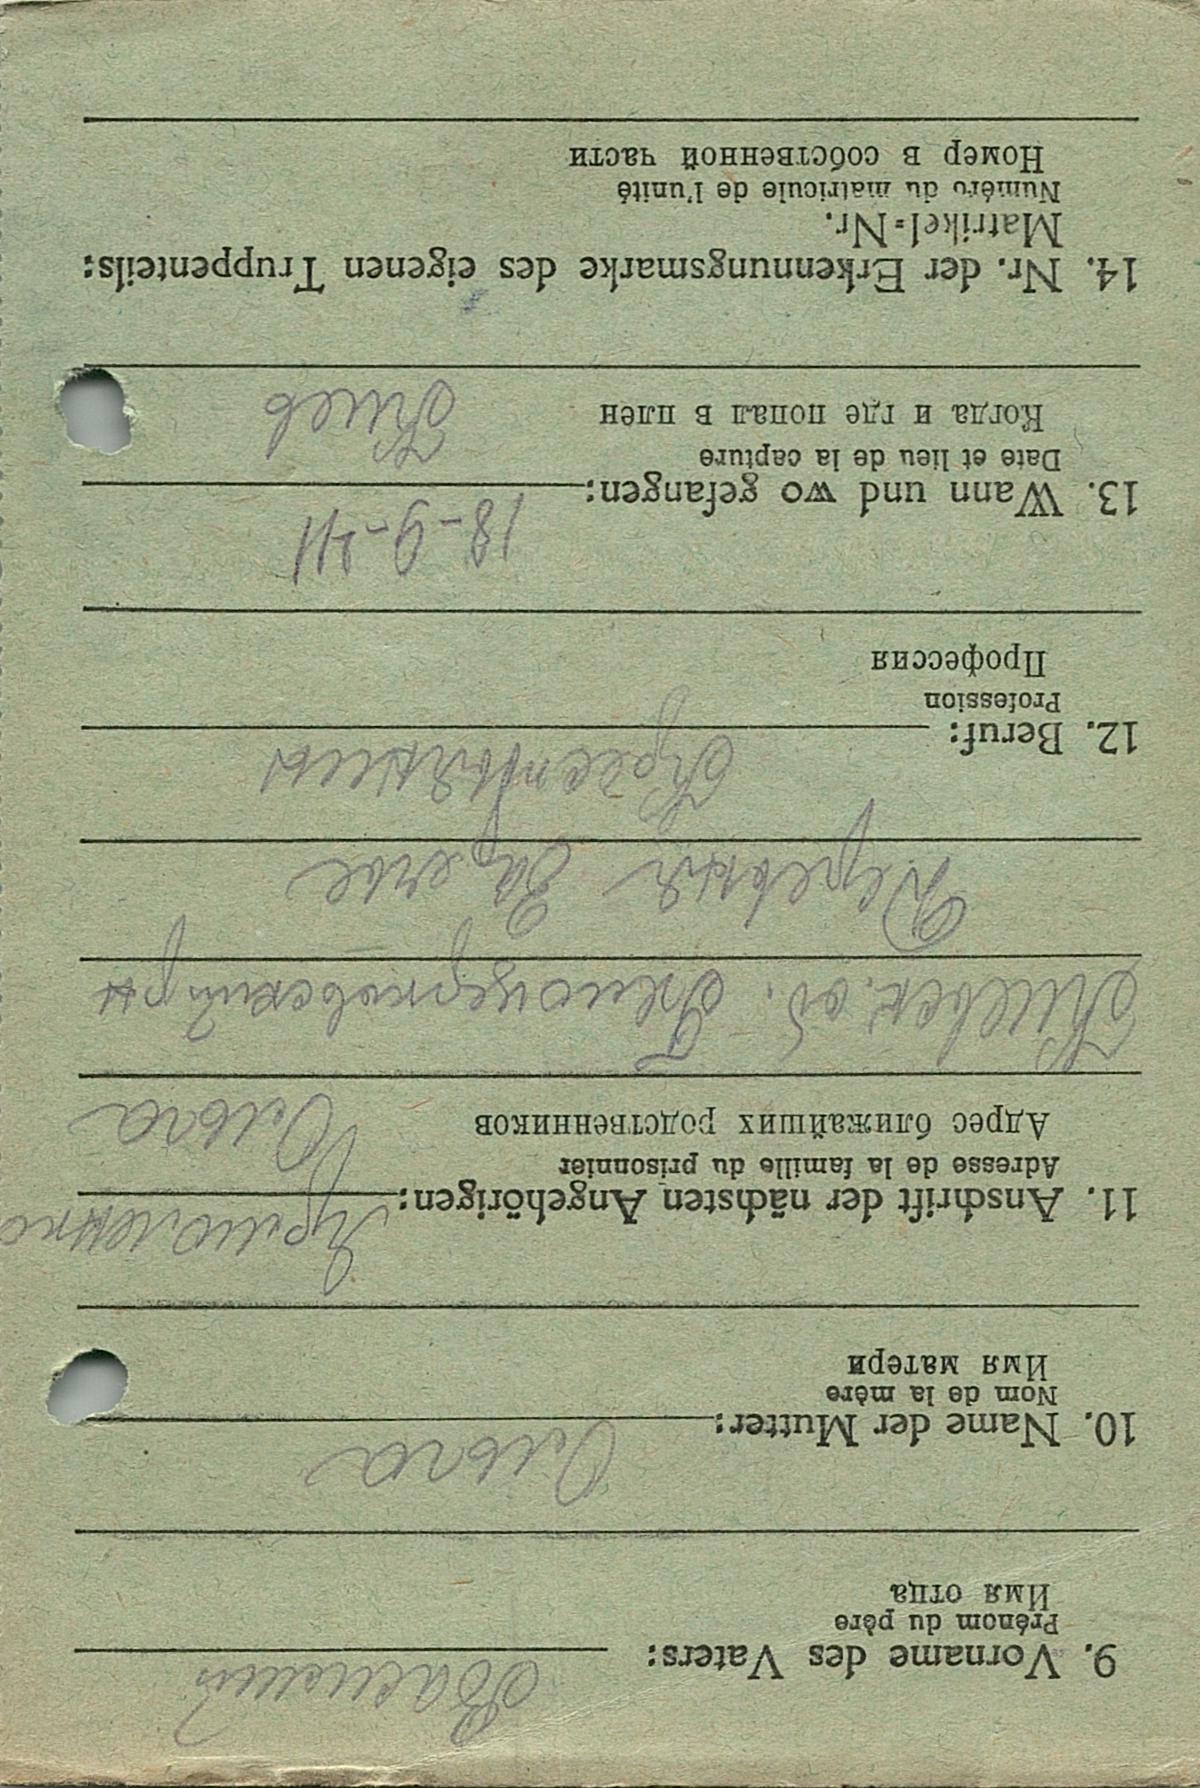 9. Vorname des Vaters: Василий
Prénom du père
Имя отца
10. Name der Mutter: Ольга
Nom de la mère
Имя матери
11. Anschrift der nächsten Angehörigen:
Adresse de la famille du prisonnier
Адрес ближайших родственников Ольга
Киевск. об. Белоцерковский р-н
Деревня
12. Beruf: Крестьянин
Profession
Профессия
13. Wann und wo gefangen: 18-9-41
Date et lieu de la capture
Когда и где попал в плен Киев
14. Nr. der Erkennungsmarke des eigenen Truppenteils:
Matrikel=Nr.
Numéro du matricule de l'unité
Номер в собственной части